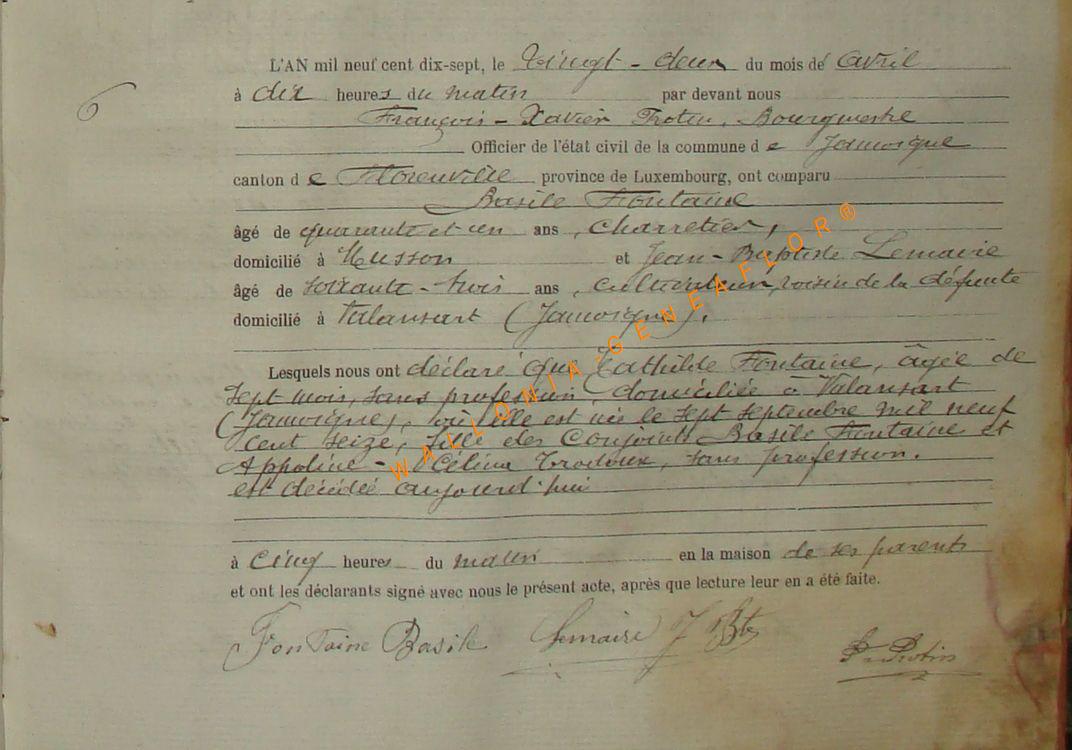 6
L'AN mil neuf cent dix-sept, le Vingt-deux du mois de avril
à dix heures du matin par devant nous
François-Xavier Protin, Bourgmestre
Officier de l'état civil de la commune de Jamoigne
canton de Florenville province de Luxembourg, ont comparu
Basile Fontaine
âgé de quarante et un ans, charretier,
domicilié à Musson et Jean-Baptiste Lemaire
âgé de soixante-trois ans, cultivateur, voisin de la défunte
domicilié à Valansart (Jamoigne).
Lesquels nous ont déclaré que Mathilde Fontaine, âgée de
sept mois, sans profession, domiciliée à Valansart
(Jamoigne), où elle est née le sept septembre mil neuf
cent seize, fille des conjoints Basile Fontaine et
Appoline-Célina, sans profession.
est décédée aujourd'hui
à cinq heures du matin en la maison de ses parents
et ont les déclarants signé avec nous le présent acte, après que lecture leur en a été faite.
Fontaine Basile Lemaire J Bte Protin
WALLONIA-GENEAFLOR®